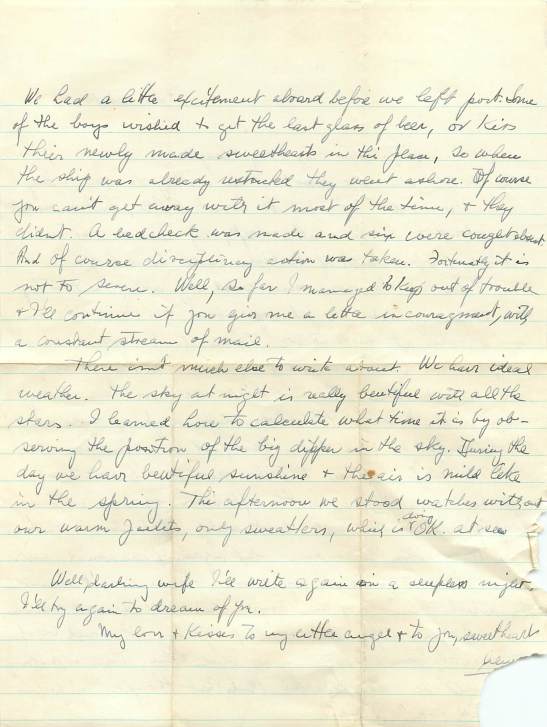 We had a little excitement aboard before we left port. Some
of the boys wished to get the last glass of beer, or kiss
thier newly made sweethearts in this place, so when
the ship was already restricted they went ashore. Of course
you can't get away with it most of the time, & they
didn't. A bedcheck was made and six were caught absent.
And of course disciplinary action was taken. Fortunatly it is
not to severe. Well, so far I managed to keep out of trouble
& I'll continue if you give me a little incouragment, with
a constant stream of mail.
There isn't much else to write about. We have ideal
weather. The sky at night is really beutiful with all the
stars. I learned how to calculate what time it is by ob-
serving the position of the big dipper in the sky. During the
day we have beutiful sunshine & the air is mild like
in the spring. This afternoon we stood watches without
our warm Jackets, only sweatters, which is doing O.K. at sea
Well, darling wife I'll write again on a sleepless night.
I'll try again to dream of you.
My love & kisses to my little angel & to you, sweetheart